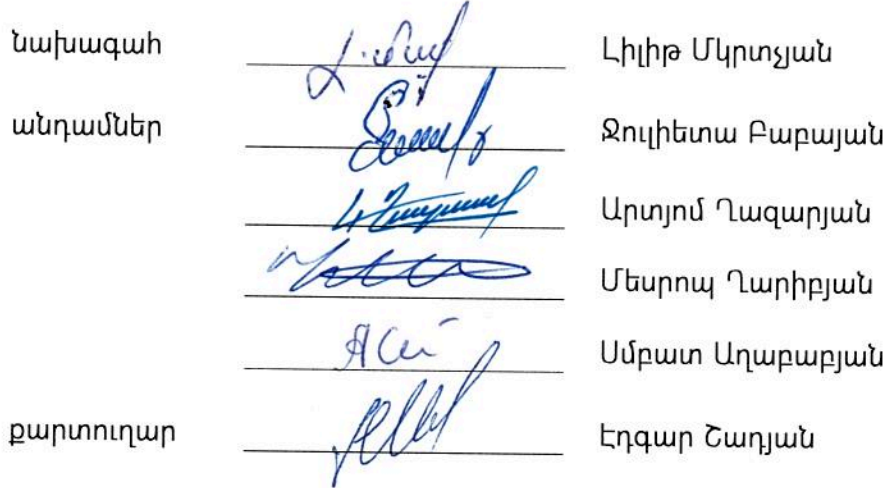 նախագահ Լիլիթ Մկրտչյան
անդամներ Ջուլիետա Բաբայան
Արտյոմ Ղազարյան
Մեսրոպ Ղարիբյան
Սմբատ Աղաբաբյան
քարտուղար Էդգար Շադյան